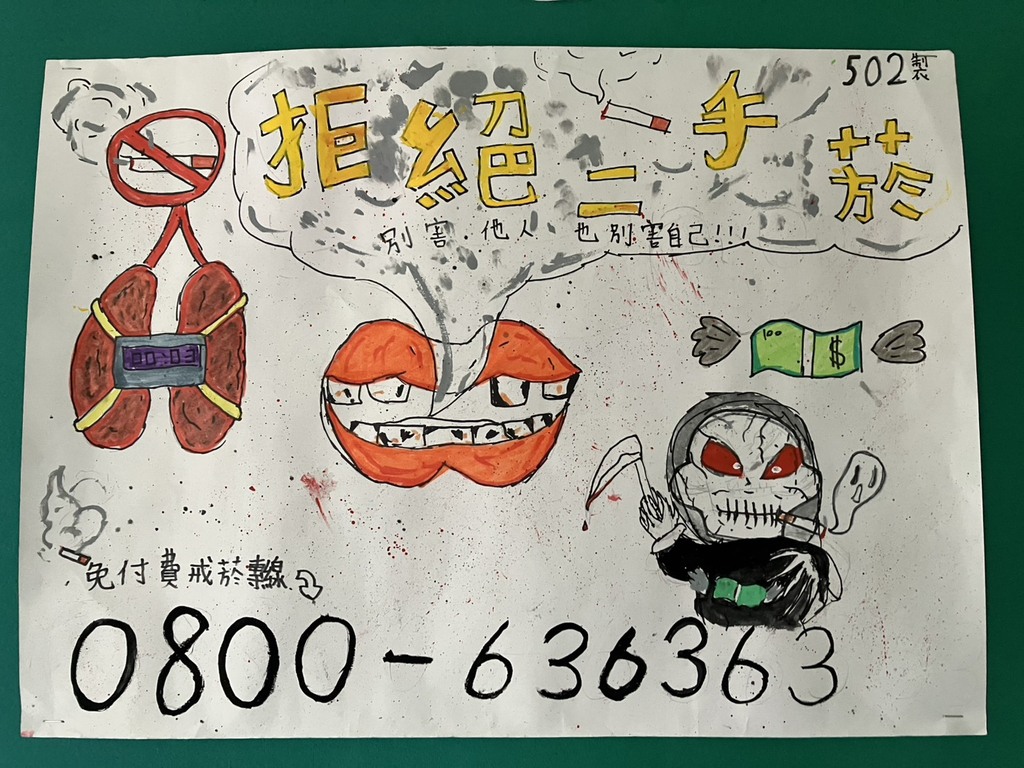 502製
拒絕二手菸
別害他人 也別害自己!!!
00:03
100
$
免付費戒菸專線
0800-636363